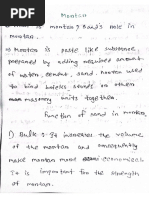 Mortar
What is mortar? Sand's role in
mortar.
Mortar is paste like substance,
prepared by adding required amount
of water, cement, sand. Mortar used
to bind bricks stones or other
masonry units together.
Function of sand in mortar.
1) Bulk: It increases the volume
of the mortar and consequently
make mortar more economical.
To is important for the strength
of mortar.